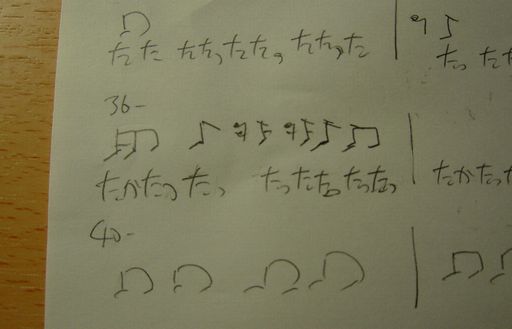 たた たたったた。たたった たっ たた
36-
たかたっ たっ たったたたったっ たかたった
40-